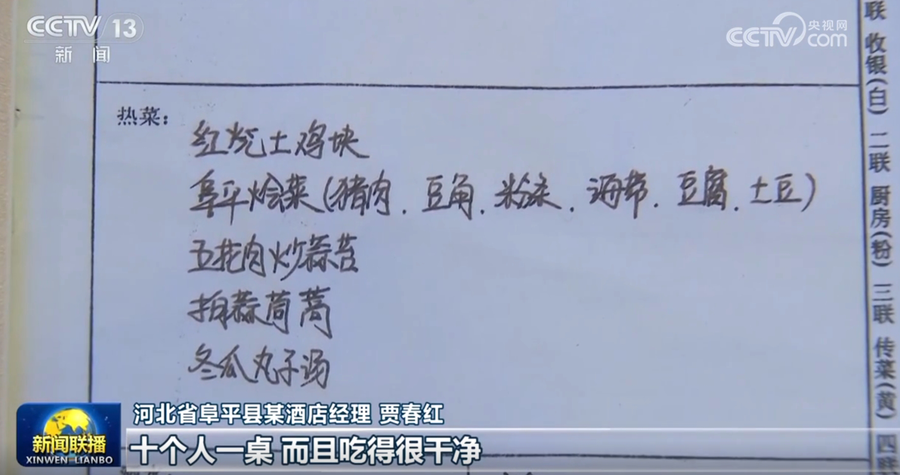 CCTV 13
新闻
央视网
CCTV.com
热菜：
红烧土鸡块
阜平烩菜(猪肉、豆角、粉条、海带、豆腐、土豆)
五花肉炒蒜苔
拍蒜茼蒿
冬瓜丸子汤
联 收银(白) 二联 厨房(粉) 三联 传菜(黄) 四联
河北省阜平县某酒店经理 贾春红
新闻联播
XINWEN LIANBO
十个人一桌 而且吃得很干净